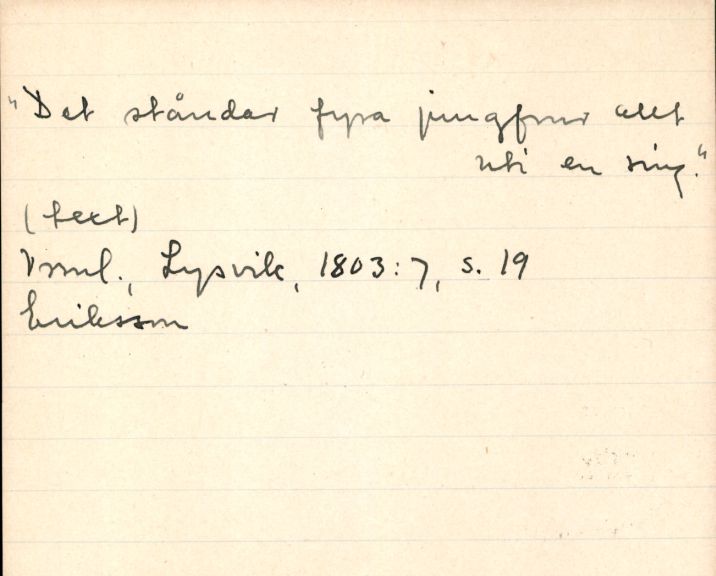 "Det ståndar fyra jungfrur allt
uti en ring."
(text)
Vrml., Lysvik, 1803:7, s. 19
Eriksson